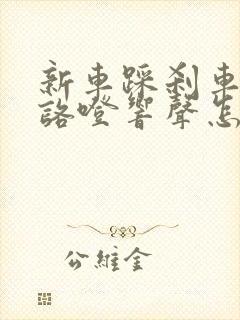 新車踩剎車
咯噔響聲怎
公維金